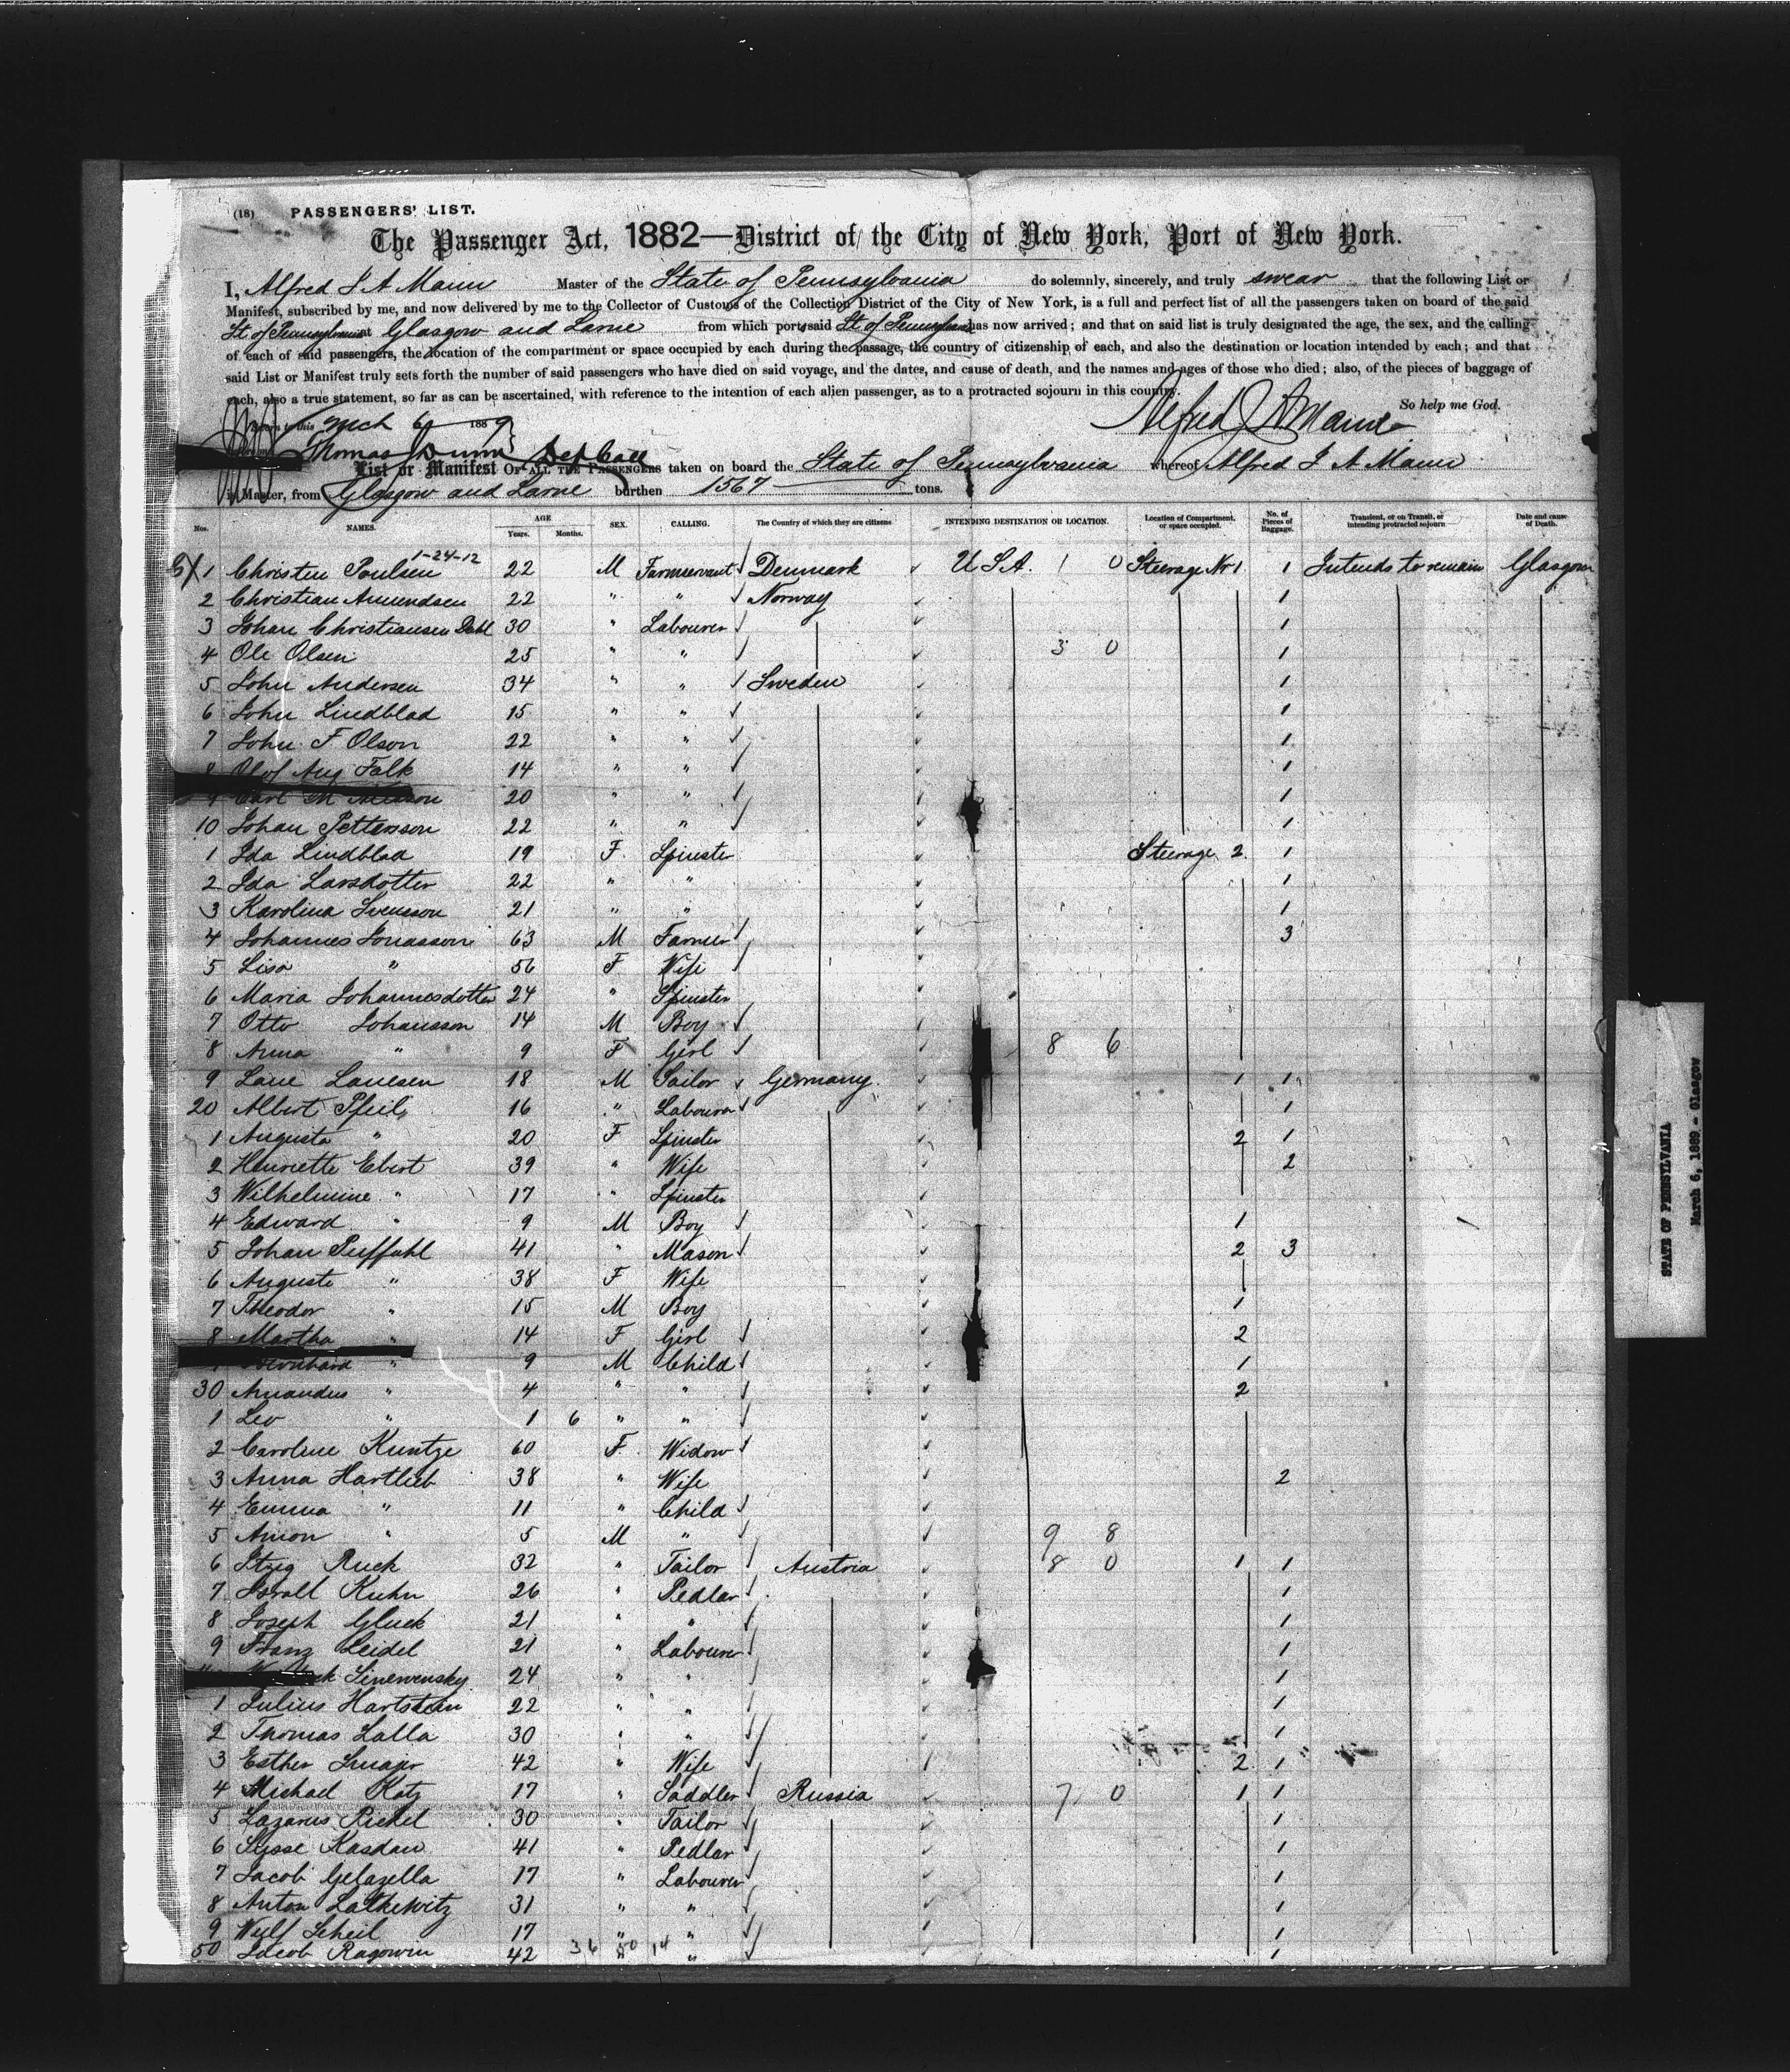 (18) PASSENGERS' LIST.
The Passenger Act, 1882—District of the City of New York, Port of New York.
I, Alfred J A Mann Master of the State of Pennsylvania do solemnly, sincerely, and truly swear that the following List or
Manifest, subscribed by me, and now delivered by me to the Collector of Customs of the Collection District of the City of New York, is a full and perfect list of all the passengers taken on board of the said
St of Pennsylvania at Glasgow and Larne from which port said St of Pennsylvania has now arrived; and that on said list is truly designated the age, the sex, and the calling
of each of said passengers, the location of the compartment or space occupied by each during the passage, the country of citizenship of each, and also the destination or location intended by each; and that
said List or Manifest truly sets forth the number of said passengers who have died on said voyage, and the dates, and cause of death, and the names and ages of those who died; also, of the pieces of baggage of
each, also a true statement, so far as can be ascertained, with reference to the intention of each alien passenger, as to a protracted sojourn in this country.
So help me God.
Sworn to this Mch 6 1889
Alfred J A Mann
Thomas Dunn Dep Coll
List or Manifest OF ALL THE PASSENGERS taken on board the State of Pennsylvania whereof Alfred J A Mann
is Master, from Glasgow and Larne burthen 1567 tons.
Nos. NAMES. AGE Years. Months. SEX. CALLING. The Country of which they are citizens INTENDING DESTINATION OR LOCATION. Location of Compartment, or space occupied. No. of Pieces of Baggage. Transient, or on Transit, or intending protracted sojourn Date and cause of Death.
1-24-12
1 Christen Poulsen 22 M Farmservant Denmark U S A. 1 0 Steerage Nr 1 1 Intends to remain Glasgow
2 Christian Amundsen 22 " " Norway 1
3 Johan Christiansen Dahl 30 " Labourer 1
4 Ole Olsen 25 " " 3 0 1
5 John Andersen 34 " " Sweden 1
6 John Lindblad 15 " " 1
7 John F Olson 22 " " 1
8 Olof Aug Falk 14 " " 1
9 Carl M 20 " " 1
10 Johan Pettersson 22 " " 1
1 Ida Lindblad 19 F. Spinster Steerage 2 1
2 Ida Larsdotter 22 " " 1
3 Karolina Svensson 21 " " 1
4 Johannes Jonasson 63 M Farmer 3
5 Lisa " 56 F Wife
6 Maria Johannesdotter 24 " Spinster
7 Otto Johansson 14 M Boy
8 Anna " 9 F Girl 8 6
9 Laue Lauesen 18 M Sailor Germany. 1 1
20 Albert Pfeil 16 " Labourer 1
1 Augusta " 20 F Spinster 2 1
2 Henriette Ebert 39 " Wife 2
3 Wilhelmine " 17 " Spinster
4 Edward " 9 M Boy 1
5 Johan Puffahl 41 " Mason 2 3
6 Auguste " 38 F Wife
7 Theodor " 15 M Boy 1
8 Martha " 14 F Girl 2
9 Bernhard " 9 M Child 1
30 Amandus " 4 " " 2
1 Leo " 1 6 " "
2 Caroline Kuntze 60 F. Widow
3 Anna Hartlieb 38 " Wife 2
4 Emma " 11 " Child
5 " 5 M " 9 8
6 Itzig Ruck 32 " Tailor Austria 8 0 1 1
7 Kuhn 26 " Pedlar 1
8 Joseph Gluck 21 " " 1
9 Franz Seidel 21 " Labourer 1
Sinewensky 24 " " 1
1 Julius Hartstein 22 " " 1
2 Thomas Lalla 30 " " 1
3 Esther 42 " Wife 2 1
4 Michael Katz 17 " Saddler Russia 7 0 1 1
5 Lazarus 30 " Tailor 1
6 Kasdan 41 " Pedlar 1
7 Jacob Gelazella 17 " Labourer 1
8 Anton Latkewitz 31 " " 1
9 Wulf Scheil 17 " " 1
50 Jacob Ragowin 42 36 50 14 " 1
STATE OF PENNSYLVANIA
March 6, 1889 - Glasgow